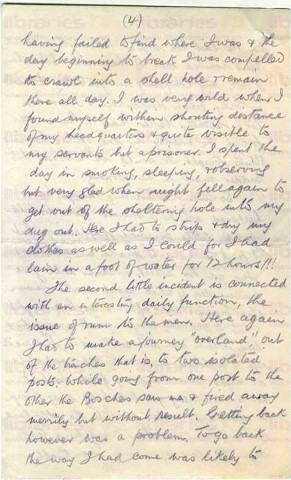 (4)
having failed to find where I was & the
day beginning to break I was compelled
to crawl into a shell hole & remain
there all day. I was very wild when I
found myself within shouting distance
of my headquarters & quite visible to
my servants but a prisoner. I spent the
day in smoking, sleeping, & observing
but very glad when night fell again to
get out of the sheltering hole into my
dug out. Here I had to strip & dry my
clothes as well as I could for I had
lain in a foot of water for 12 hours!!!
The second little incident is connected
with an interesting daily function, the
issue of rum to the men. Here again
I has to make a journey "overland", out
of the trenches that is, to two isolated
posts. While going from one post to the
other the Bosches saw us & fired away
merrily but without result. Getting back
however was a problem. To go back
the way I had come was likely to